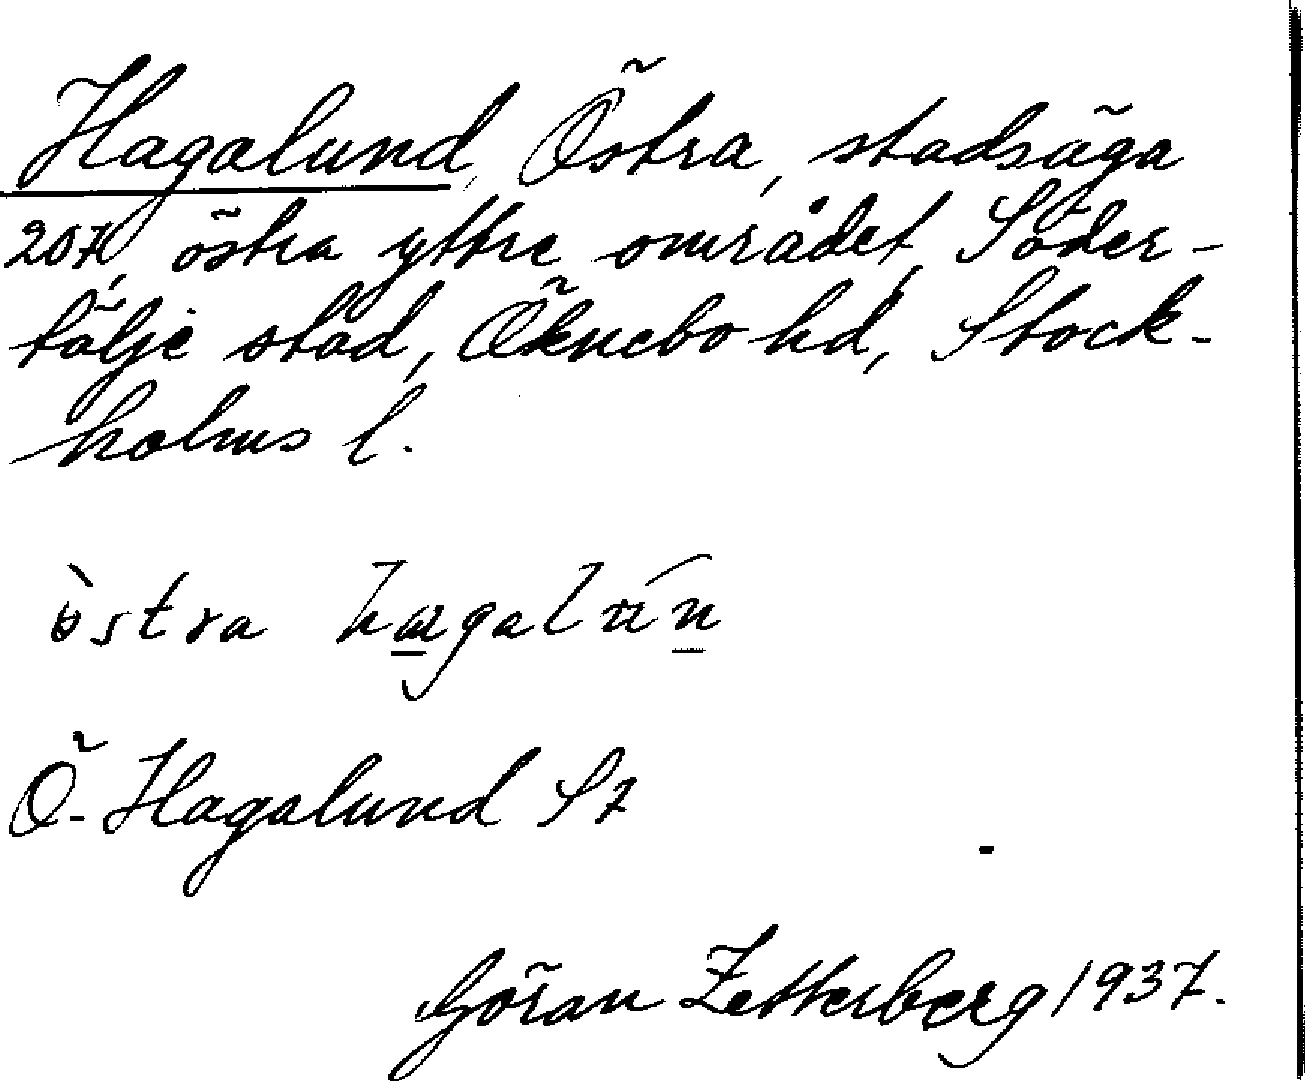 Hagalund, Östra, stadsäga
207, östra yttre området, Söder-
tälje stad, Öknebo hd, Stock-
holms l.
östra hagalun
Ö. Hagalund Sz
Göran Zetterberg 1937.